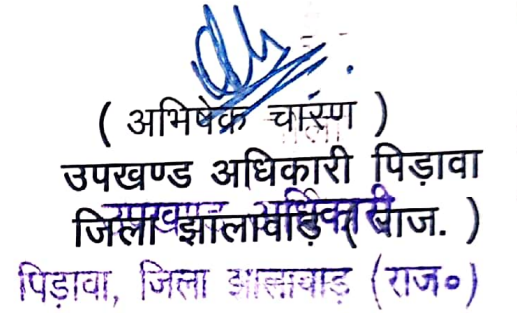 ( अभिषेक चारण )
उपखण्ड अधिकारी पिड़ावा
जिला झालावाड़ ( राज. )
उपखण्ड अधिकारी
पिड़ावा, जिला झालावाड़ (राज०)